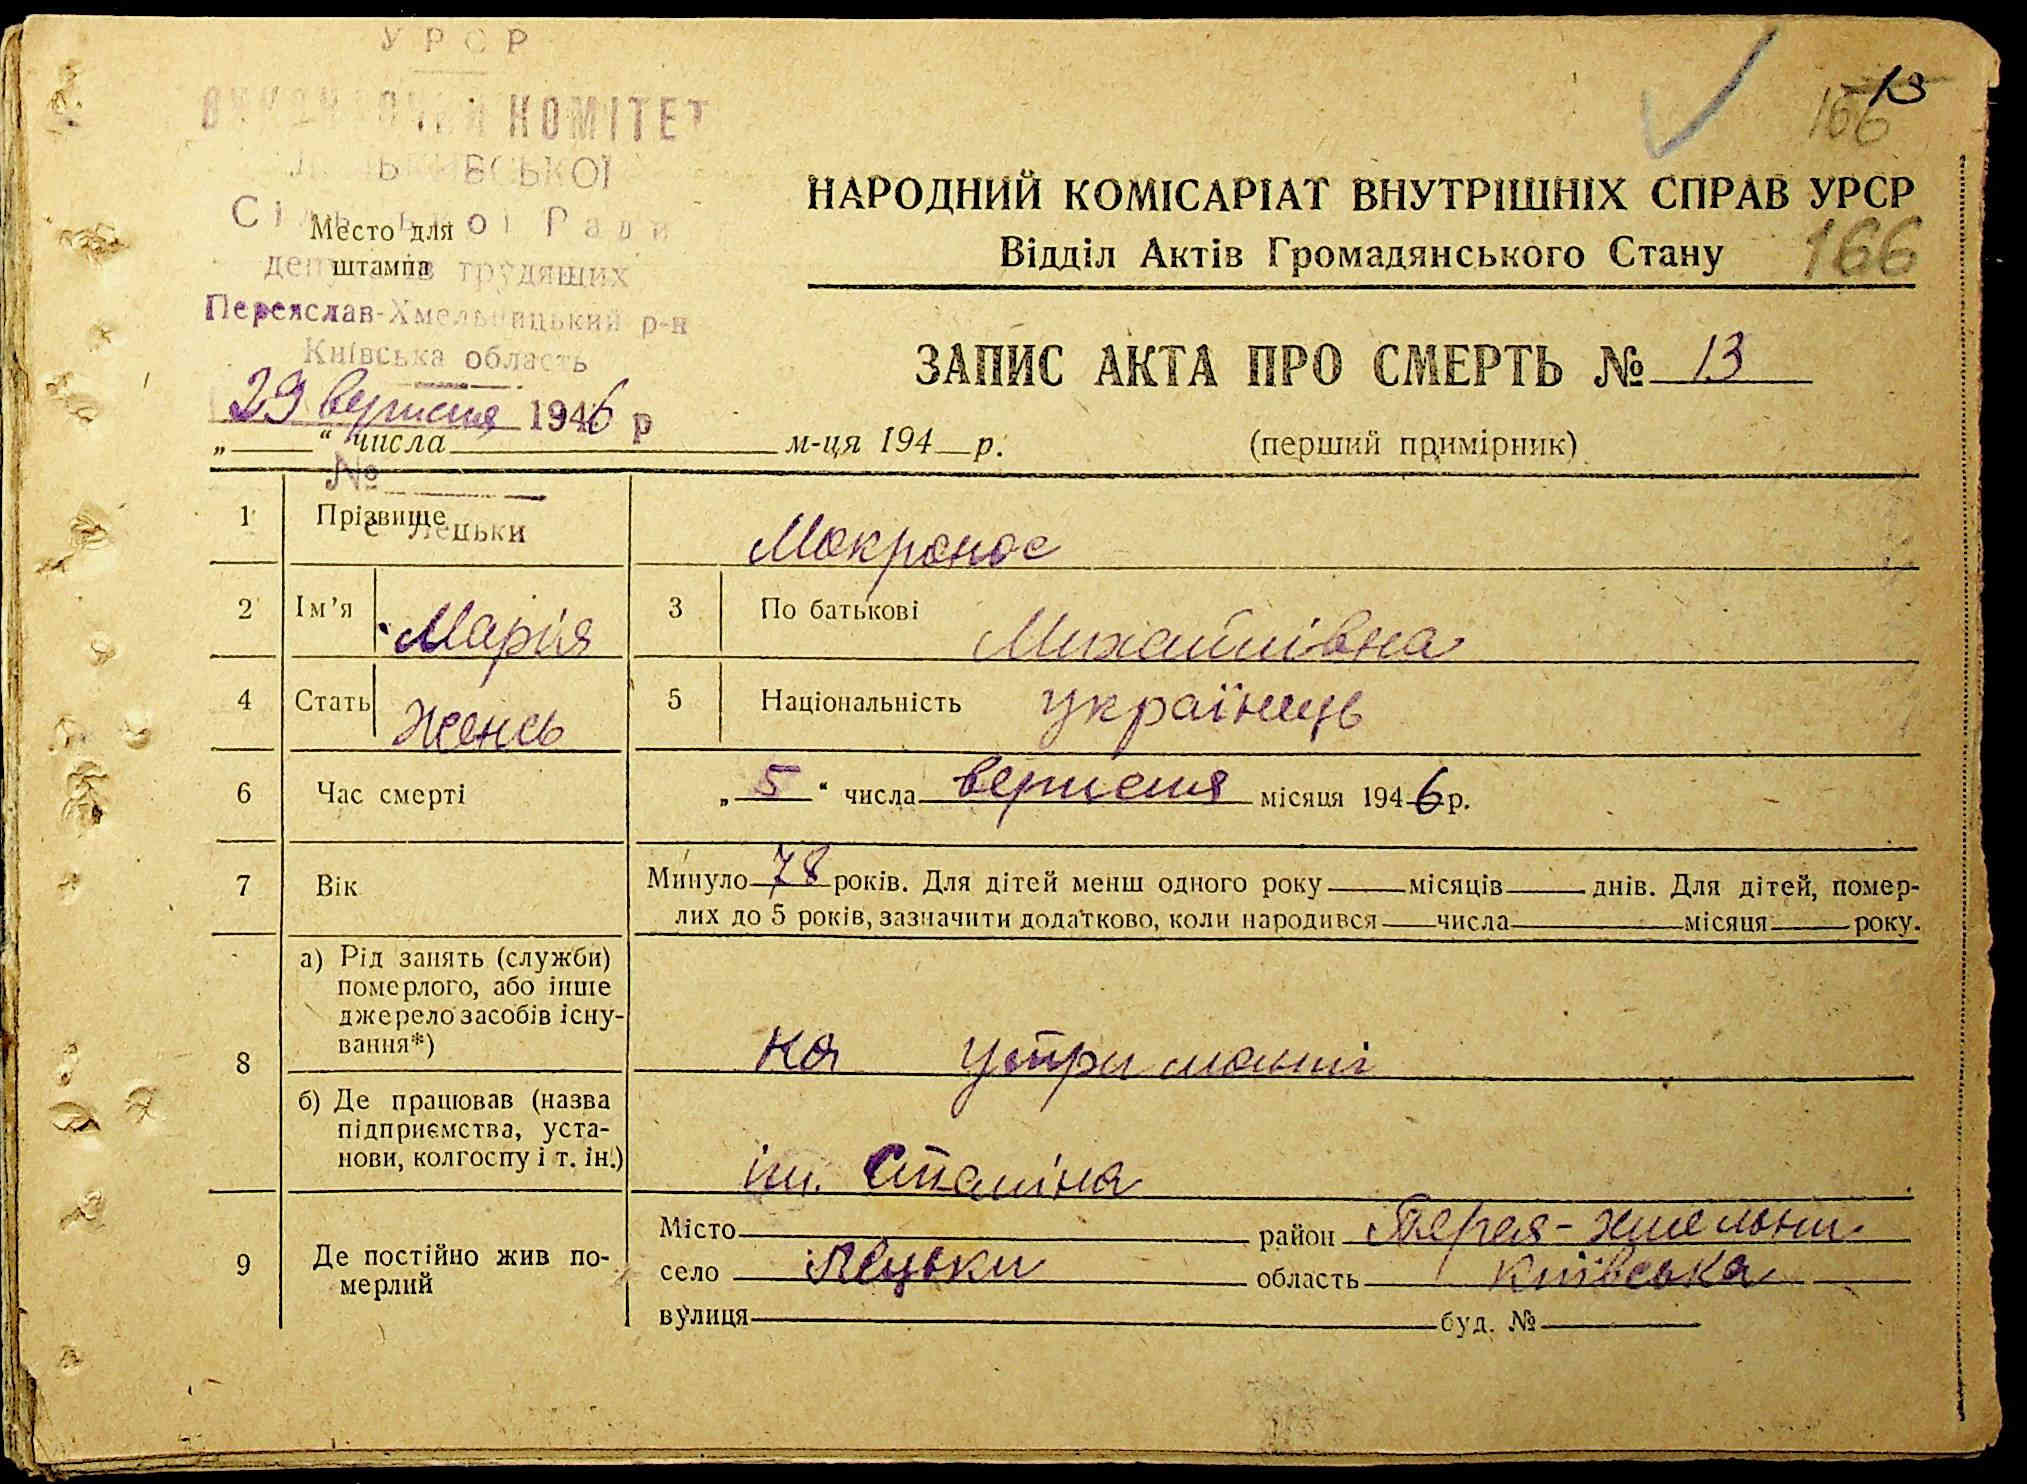 УРСР
ВИКОНАВЧИЙ КОМІТЕТ
ЛЕЦЬКІВСЬКОЇ
Сільської Ради
депутатів трудящих
Переяслав-Хмельницький р-н
Київська область
29 вересня 1946 р
№
с Лецьки
Место для
штампа
13
166
166
НАРОДНИЙ КОМІСАРІАТ ВНУТРІШНІХ СПРАВ УРСР
Відділ Актів Громадянського Стану
ЗАПИС АКТА ПРО СМЕРТЬ № 13
„ “ числа м-ця 194 р.
(перший примірник)
1 Прізвище Мокронос
2 Ім’я Марія 3 По батькові Михайлівна
4 Стать женсь 5 Національність українць
6 Час смерті „ 5 “ числа вересня місяця 1946 р.
7 Вік Минуло 78 років. Для дітей менш одного року місяців днів. Для дітей, помер-
лих до 5 років, зазначити додатково, коли народився числа місяця року.
8 а) Рід занять (служби)
померлого, або інше
джерело засобів існу-
вання*)
на утриманні
б) Де працював (назва
підприємства, уста-
нови, колгоспу і т. ін.)
ім. Сталіна
9 Де постійно жив по-
мерлий
Місто район Перея-Хмельни
село Лецьки область Київська
вулиця буд. №